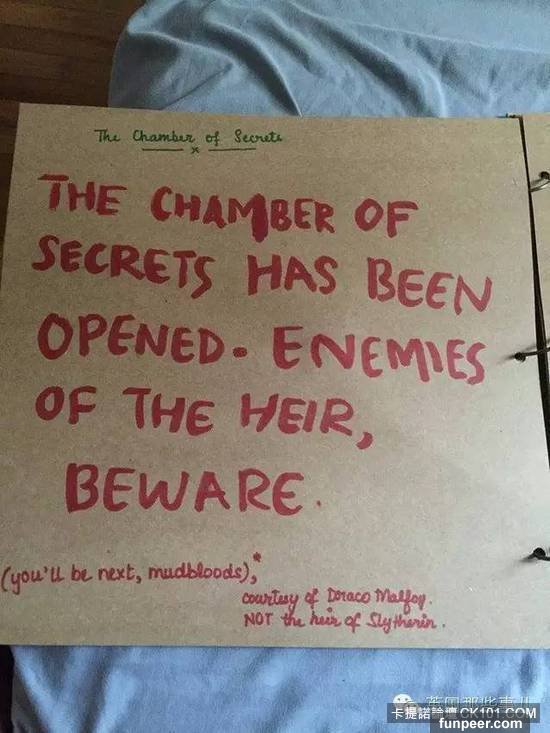 The Chamber of Secrets
THE CHAMBER OF
SECRETS HAS BEEN
OPENED. ENEMIES
OF THE HEIR,
BEWARE.
(you'll be next, mudbloods),*
courtesy of Doraco Malfoy.
NOT the heir of Slytherin.
英国那些事儿
卡提諾論壇 CK101.COM
funpeer.com